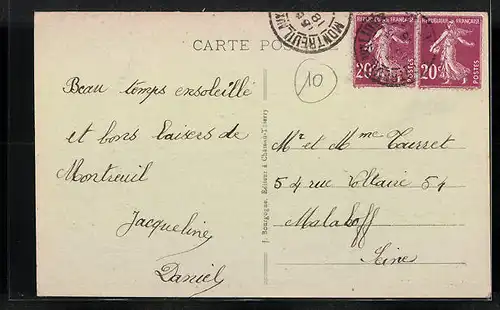 CARTE
MONTREUIL
REPUBLIQUE FRANÇAISE
20c
POSTES
REPUBLIQUE FRANÇAISE
20c
POSTES
10
Beau temps ensoleillé
et bons baisers de
Montreuil
Jacqueline
Daniel
J. Bourgogne, Editeur à Château-Thierry
Mr et Mme Tousset
54 rue Voltaire 54
Malakoff
Seine